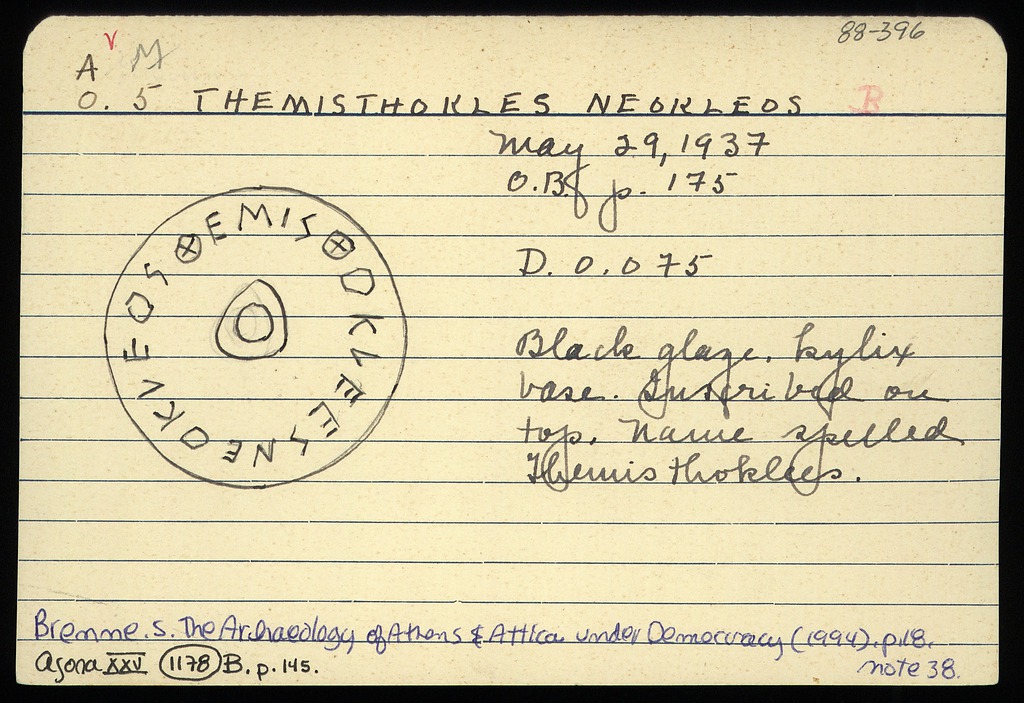 88-396
v
A M
O. 5 THEMISTHOKLES NEOKLEOS B
May 29, 1937
O.B. p. 175
D. 0.075
Black glaze. kylix
base. Inscribed on
top. Name spelled
Themisthoklees.
⊗EMIS⊗OKLEESNEOKLEOS
Brenne. S. The Archaeology of Athens & Attica under Democracy (1994). p.18.
note 38.
Agora XXV 1178 B. p. 145.